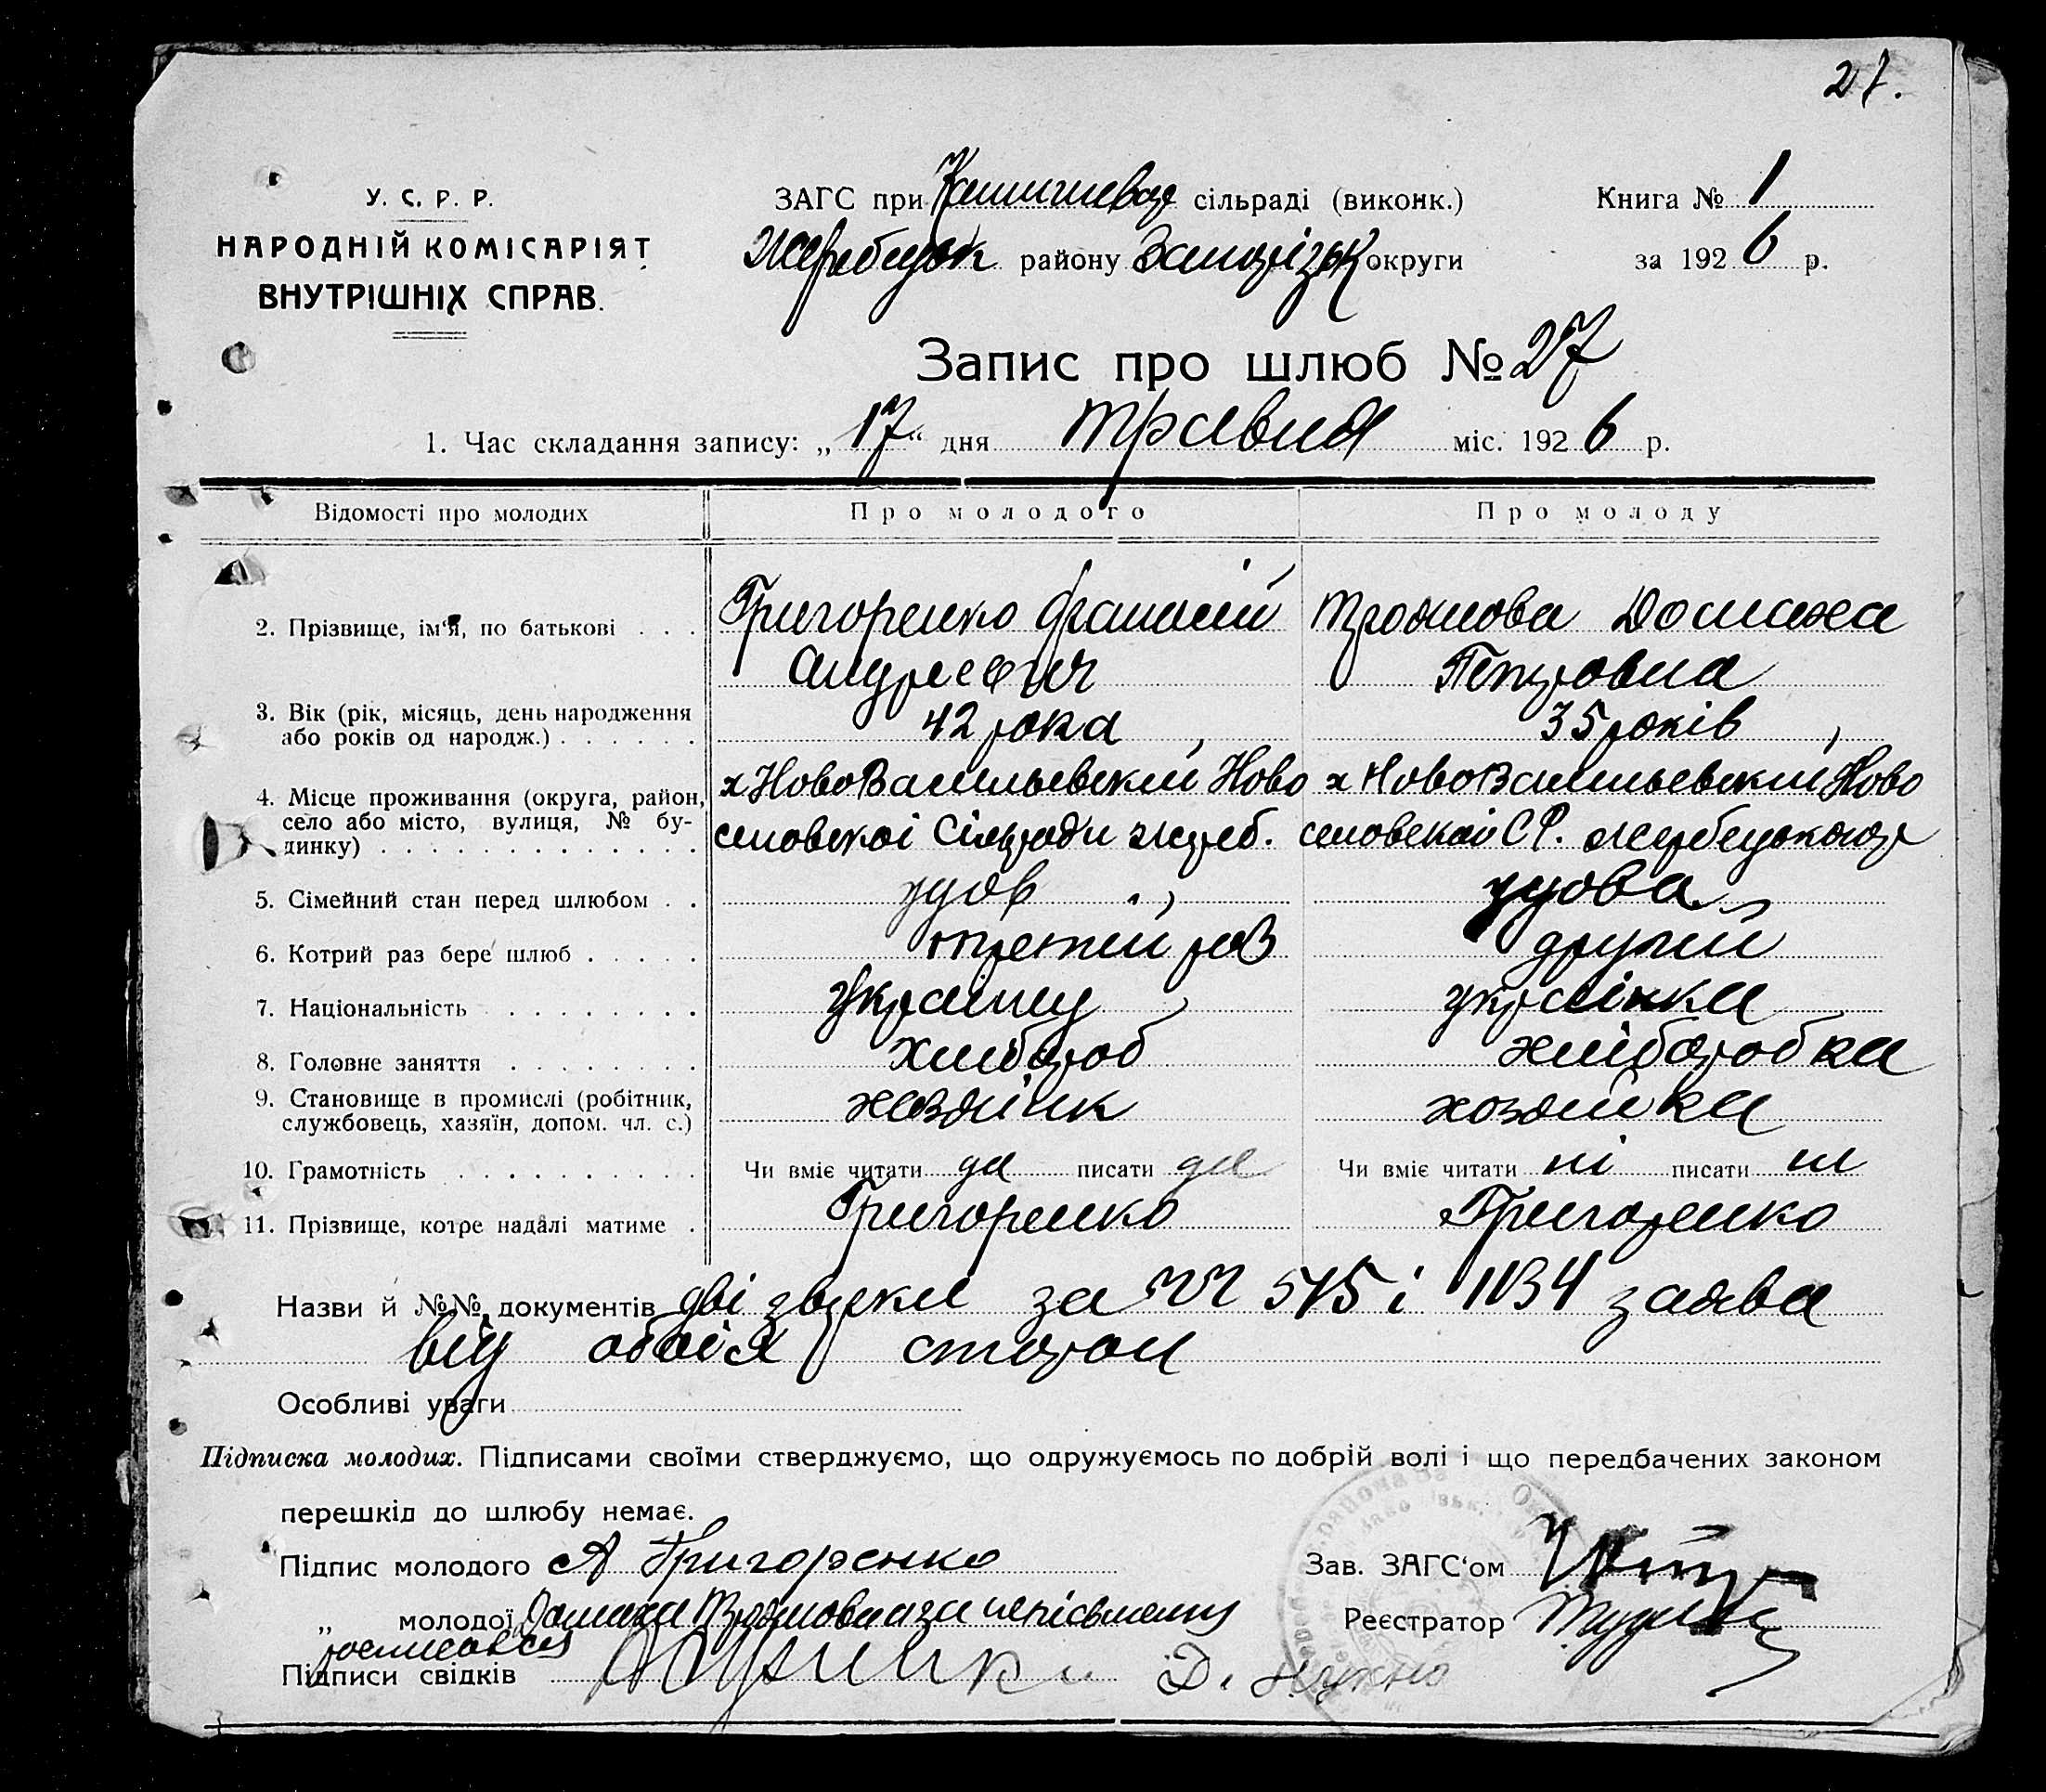 27.
У. С. Р. Р.
НАРОДНІЙ КОМІСАРІЯТ
ВНУТРІШНІХ СПРАВ.
ЗАГС при сільраді (виконк.)
Жеребцьк району Запорізьк округи
Книга № 1
за 1926 р.
Запис про шлюб № 27
1. Час складання запису: „17“ дня травня міс. 1926 р.
Відомості про молодих Про молодого Про молоду
2. Прізвище, ім‘я, по батькові . . . Григоренко Андреевич
Домаха Петровна
3. Вік (рік, місяць, день народження
або років од народж.) . . . . . . 42 рока 35 років
4. Місце проживання (округа, район,
село або місто, вулиця, № бу-
динку) . . . . . . . . . . . . .
х НовоВасильевский Ново
х НовоВасильевский Ново
сільради жереб.
5. Сімейний стан перед шлюбом . . удов удова
6. Котрий раз бере шлюб . . . . . третий раз другий
7. Національність . . . . . . . . українц українка
8. Головне заняття . . . . . . . . хлибороб хлиборобка
9. Становище в промислі (робітник,
службовець, хазяїн, допом. чл. с.) хозяйка
10. Грамотність . . . . . . . . . . Чи вміє читати да писати да Чи вміє читати ні писати ні
11. Прізвище, котре надалі матиме . Григоренко Григоренко
Назви й №№ документів дві за 515 і 1134 заява
від обоїх сторон
Особливі уваги
Підписка молодих. Підписами своїми стверджуємо, що одружуємось по добрій волі і що передбачених законом
перешкід до шлюбу немає.
Підпис молодого А Григоренко
Зав. ЗАГС‘ом
„ молодої Домаха
Реєстратор
Підписи свідків